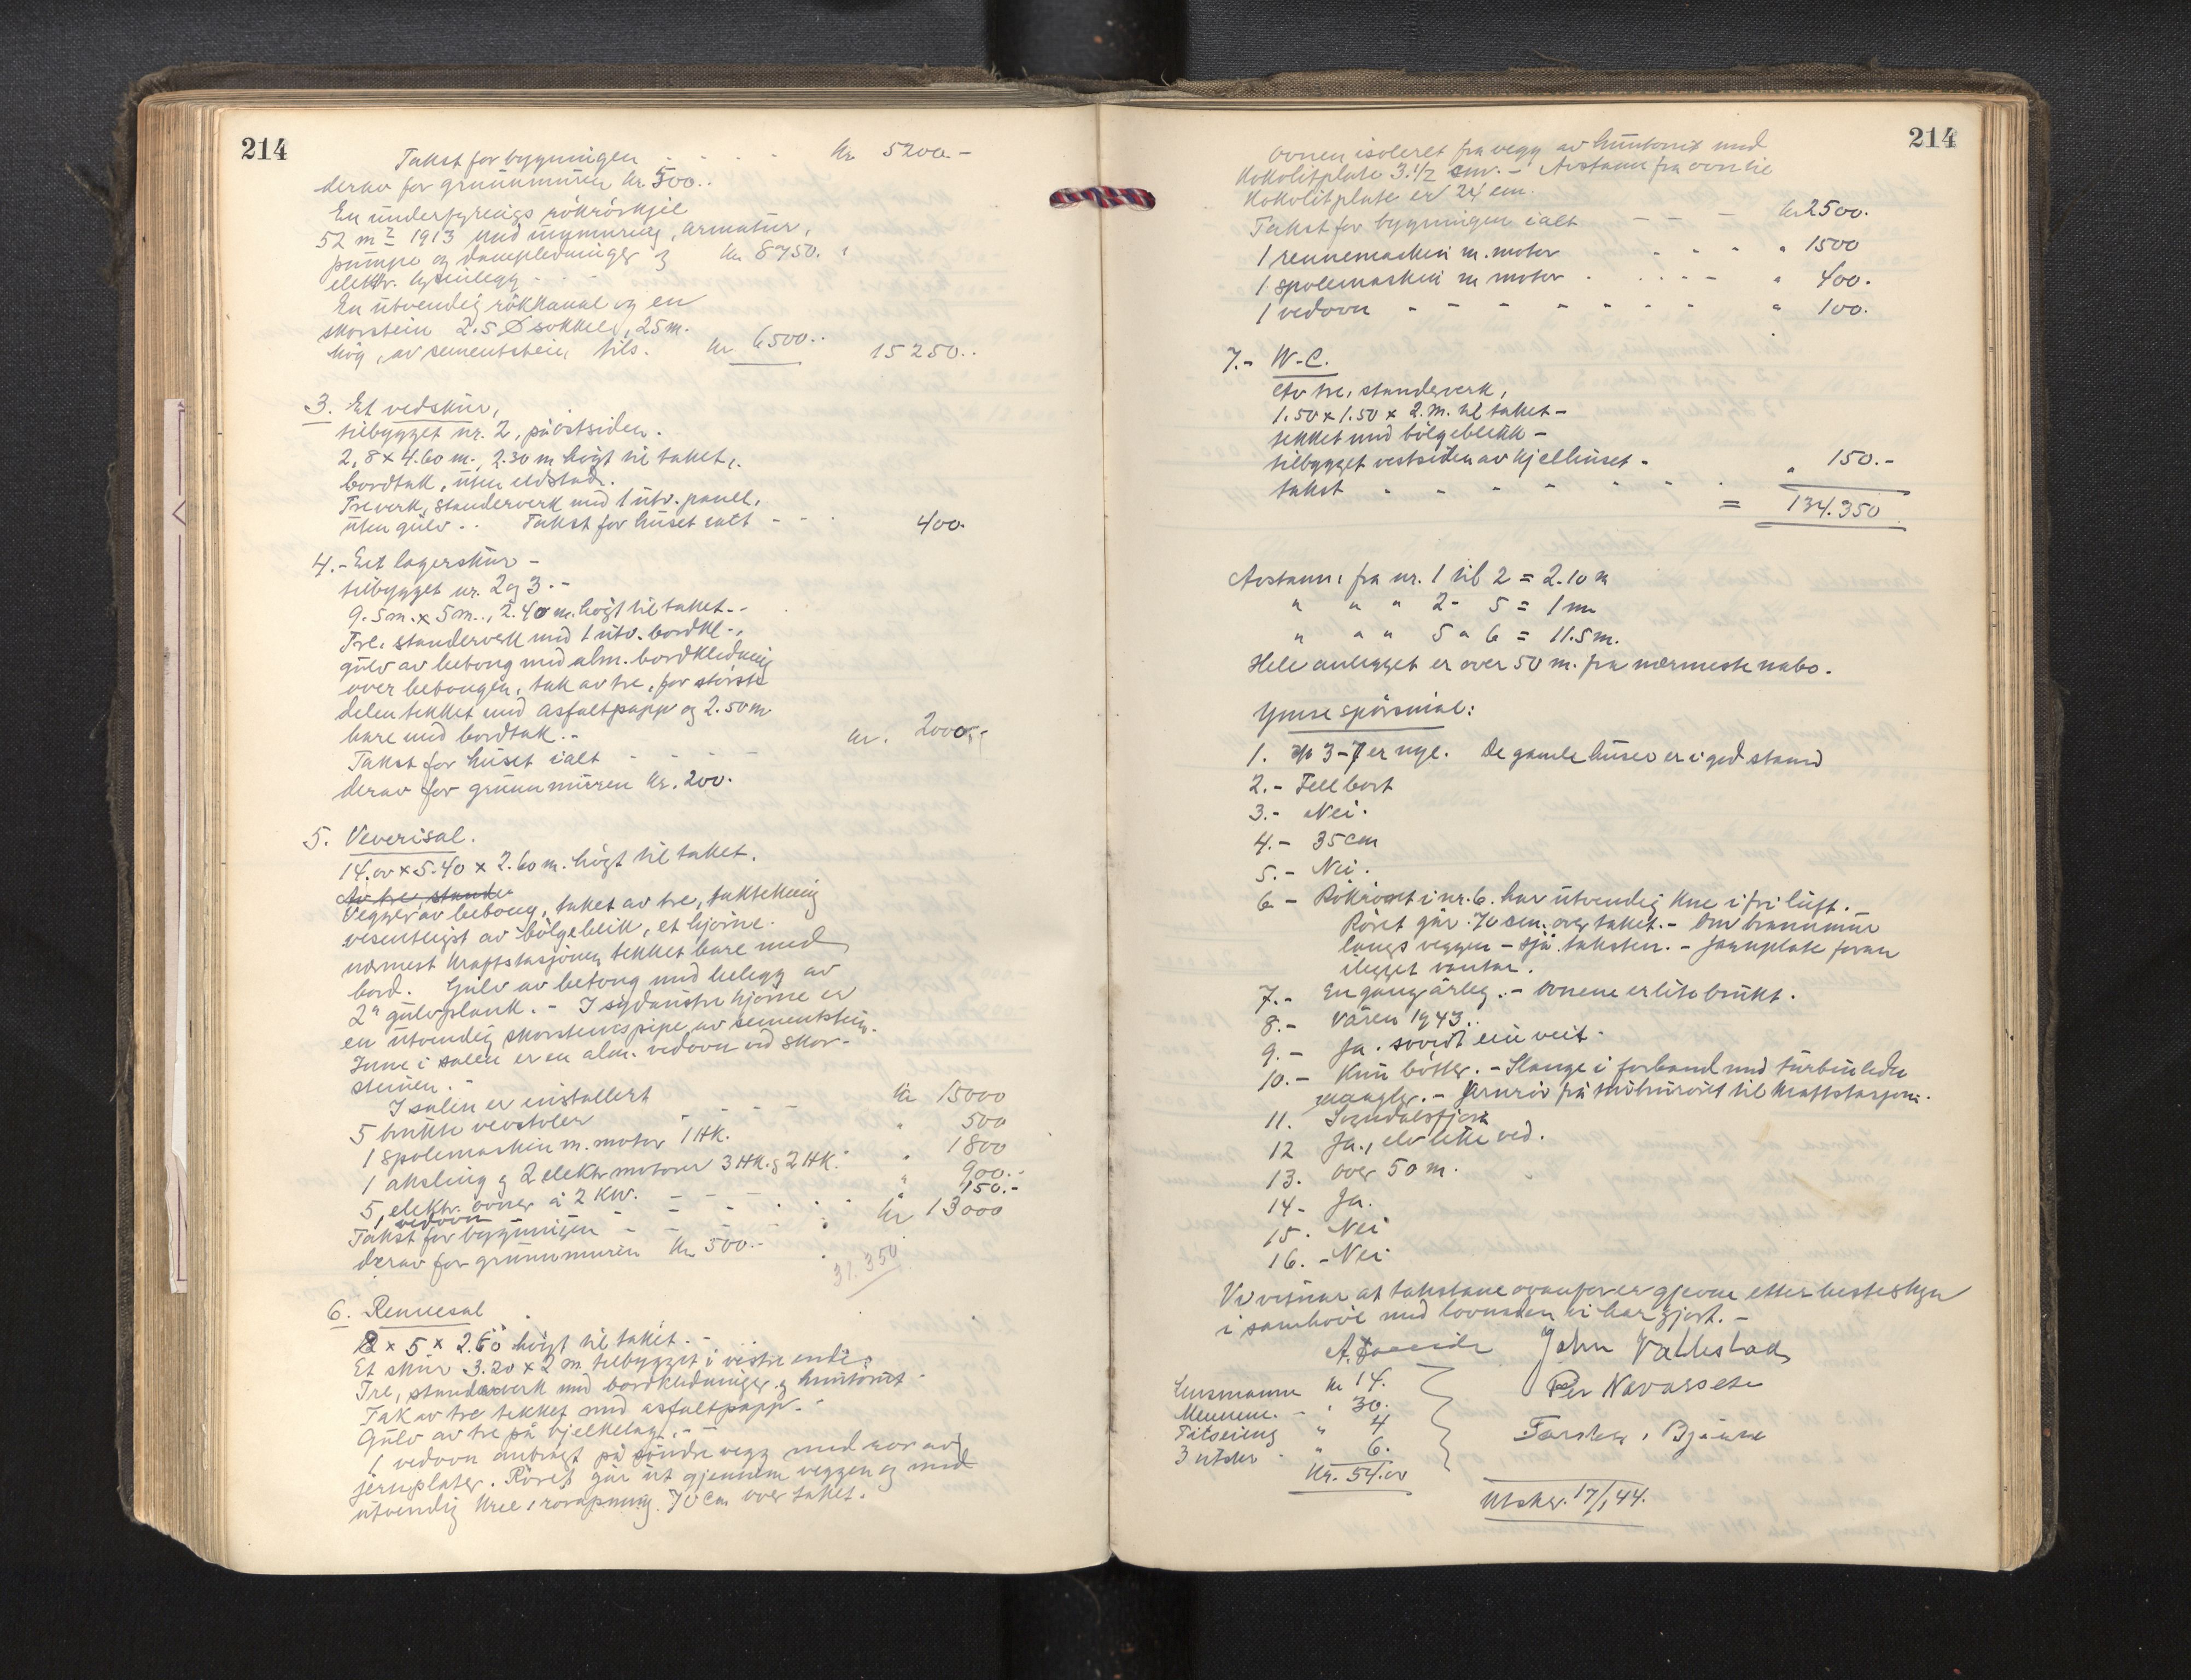 214
Takst for bygningen - - - - kr. 5200.-
derav for grunnmuren kr. 500..
En underfyrings rökrörkjel
52 m² 1913 med innmuring, armatur,
pumpe og dampledninger og kr. 8750.
elektr. lysinlegg - - -
En utvendig rökkanal og en
skorstein 2.5 Ø sokkel, 25 m.
hög, av sementstein tils. kr 6500.. 15250..
3. Et vedskur,
tilbygget nr. 2, på östsiden.
2,8 x 4.60 m., 2.30 m högt til taket,.
bordtak, uten eldstad.
Treverk, standerverk med 1 utv. panel,
uten gulv.. Takst for huset ialt - - - 400.
4.- Eit lagerskur -
tilbygget nr. 2 og 3.-
9.5m. x 5m., 2.40 m. högt til taket.-
Tre, standerverk med 1 utv. bordkl.,
gulv av betong med alm. bordkledning
over betongen, tak av tre, for störste
delen tekket med asfaltpapp og 2.50 m.
bare med bordtak.-
Takst for huset ialt - - - - kr. 2000.-
derav for grunnmuren kr. 200.
5. Veverisal.
14.00 x 5.40 x 2.60 m. högt til taket.
Av tre, stande
Vegger av betong, taket av tre, taktekning
vesentligst av bölgeblik, et hjörne
nærmest kraftstasjonen tekket bare med
bord. Gulv av betong med belegg av
2" gulvplank. - I sydaustre hjörne er
en utvendig skorsteinspipe av sementstein.
Inne i salen er en alm. vedovn ved skor-
steinen.-
I salen er installert
5 brukte vevstoler - - - - kr 15000
1 spolemaskin m. motor 1 HK. " 500
1 aksling og 2 elektr. motorer 3 HK. og 2 HK. " 1800
5 elektr. ovner à 2 KW. - - - " 900.-
1 vedovn - - - 150.-
Takst for bygningen - - - - kr 13000
derav for grunnmuren kr 500.-
31.350
6. Rennesal
8 x 5 x 2.60 högt til taket.-
Et skur 3.20 x 2 m. tilbygget i vestre ende.
Tre, standerverk med bordkledninger og huntonit.
Tak av tre tekket med asfaltpapp.-
Gulv av tre på bjelkelag.-
1 vedovn anbragt på söndre vegg med rör av
jernplater. Röret går ut gjennem veggen og med
utvendig kne, rörapning 70 cm over taket.
214
Ovnen isoleret fra vegg av huntonit med
Kokolitplate 3.1/2 cm. - Avstand fra ovn til
Kokolitplate er 24 cm.
Takst for bygningen ialt - - - kr 2500.
1 rennemaskin m. motor - - - " 1500
1 spolemaskin m motor - - - - " 400.
1 vedovn - - - - - - - " 100.
7.- W-C.
Av tre, standerverk,
1.50 x 1.50 x 2. m. til taket -
tekket med bölgeblikk -
tilbygget vestsiden av kjelhuset -
takst - - - - - - - " 150.-
= 134.350
Avstann: fra nr. 1 til 2 = 2.10 m
" " " 2 - 5 = 1 m
" " " 5 " 6 = 11.5 m.
Hele anlegget er over 50 m. fra nærmeste nabo.
Ymse spörsmål:
1. 3-7 er nye. De gamle husa er i god stand
2.- Fell bort
3.- Nei.
4.- 35 cm
5.- Nei.
6 - Rökröret i nr. 6. har utvendig kne i fri luft.
Röret går 70 cm. over taket. - Om brannmur
langs veggen - sjå taksten. - Jarnplate foran
ilegget vantar.
7.- En gang årleg.- Ovnene er lite brukt.
8.- Våren 1943..
9.- Ja. sovidt ein veit.
10.- Kun bötter. - Slange i forband med turbinledn
mangler. - på til kraftstasjon.
11. Sogndalsfjöra
12 Ja, elv like ved.
13. Over 50 m.
14- Ja.
15. Nei
16. - Nei
Vi vitnar at takstane ovanfor er gjevne etter beste skyn
i samhöve med lovnaden vi har gjort. -
John Vallestad
Lensmann kr 14. Per Navarsete
Mennene. - " 30.
" 4
3 utskr " 6.
Kr. 54.00
Utskr. 17/1 44.